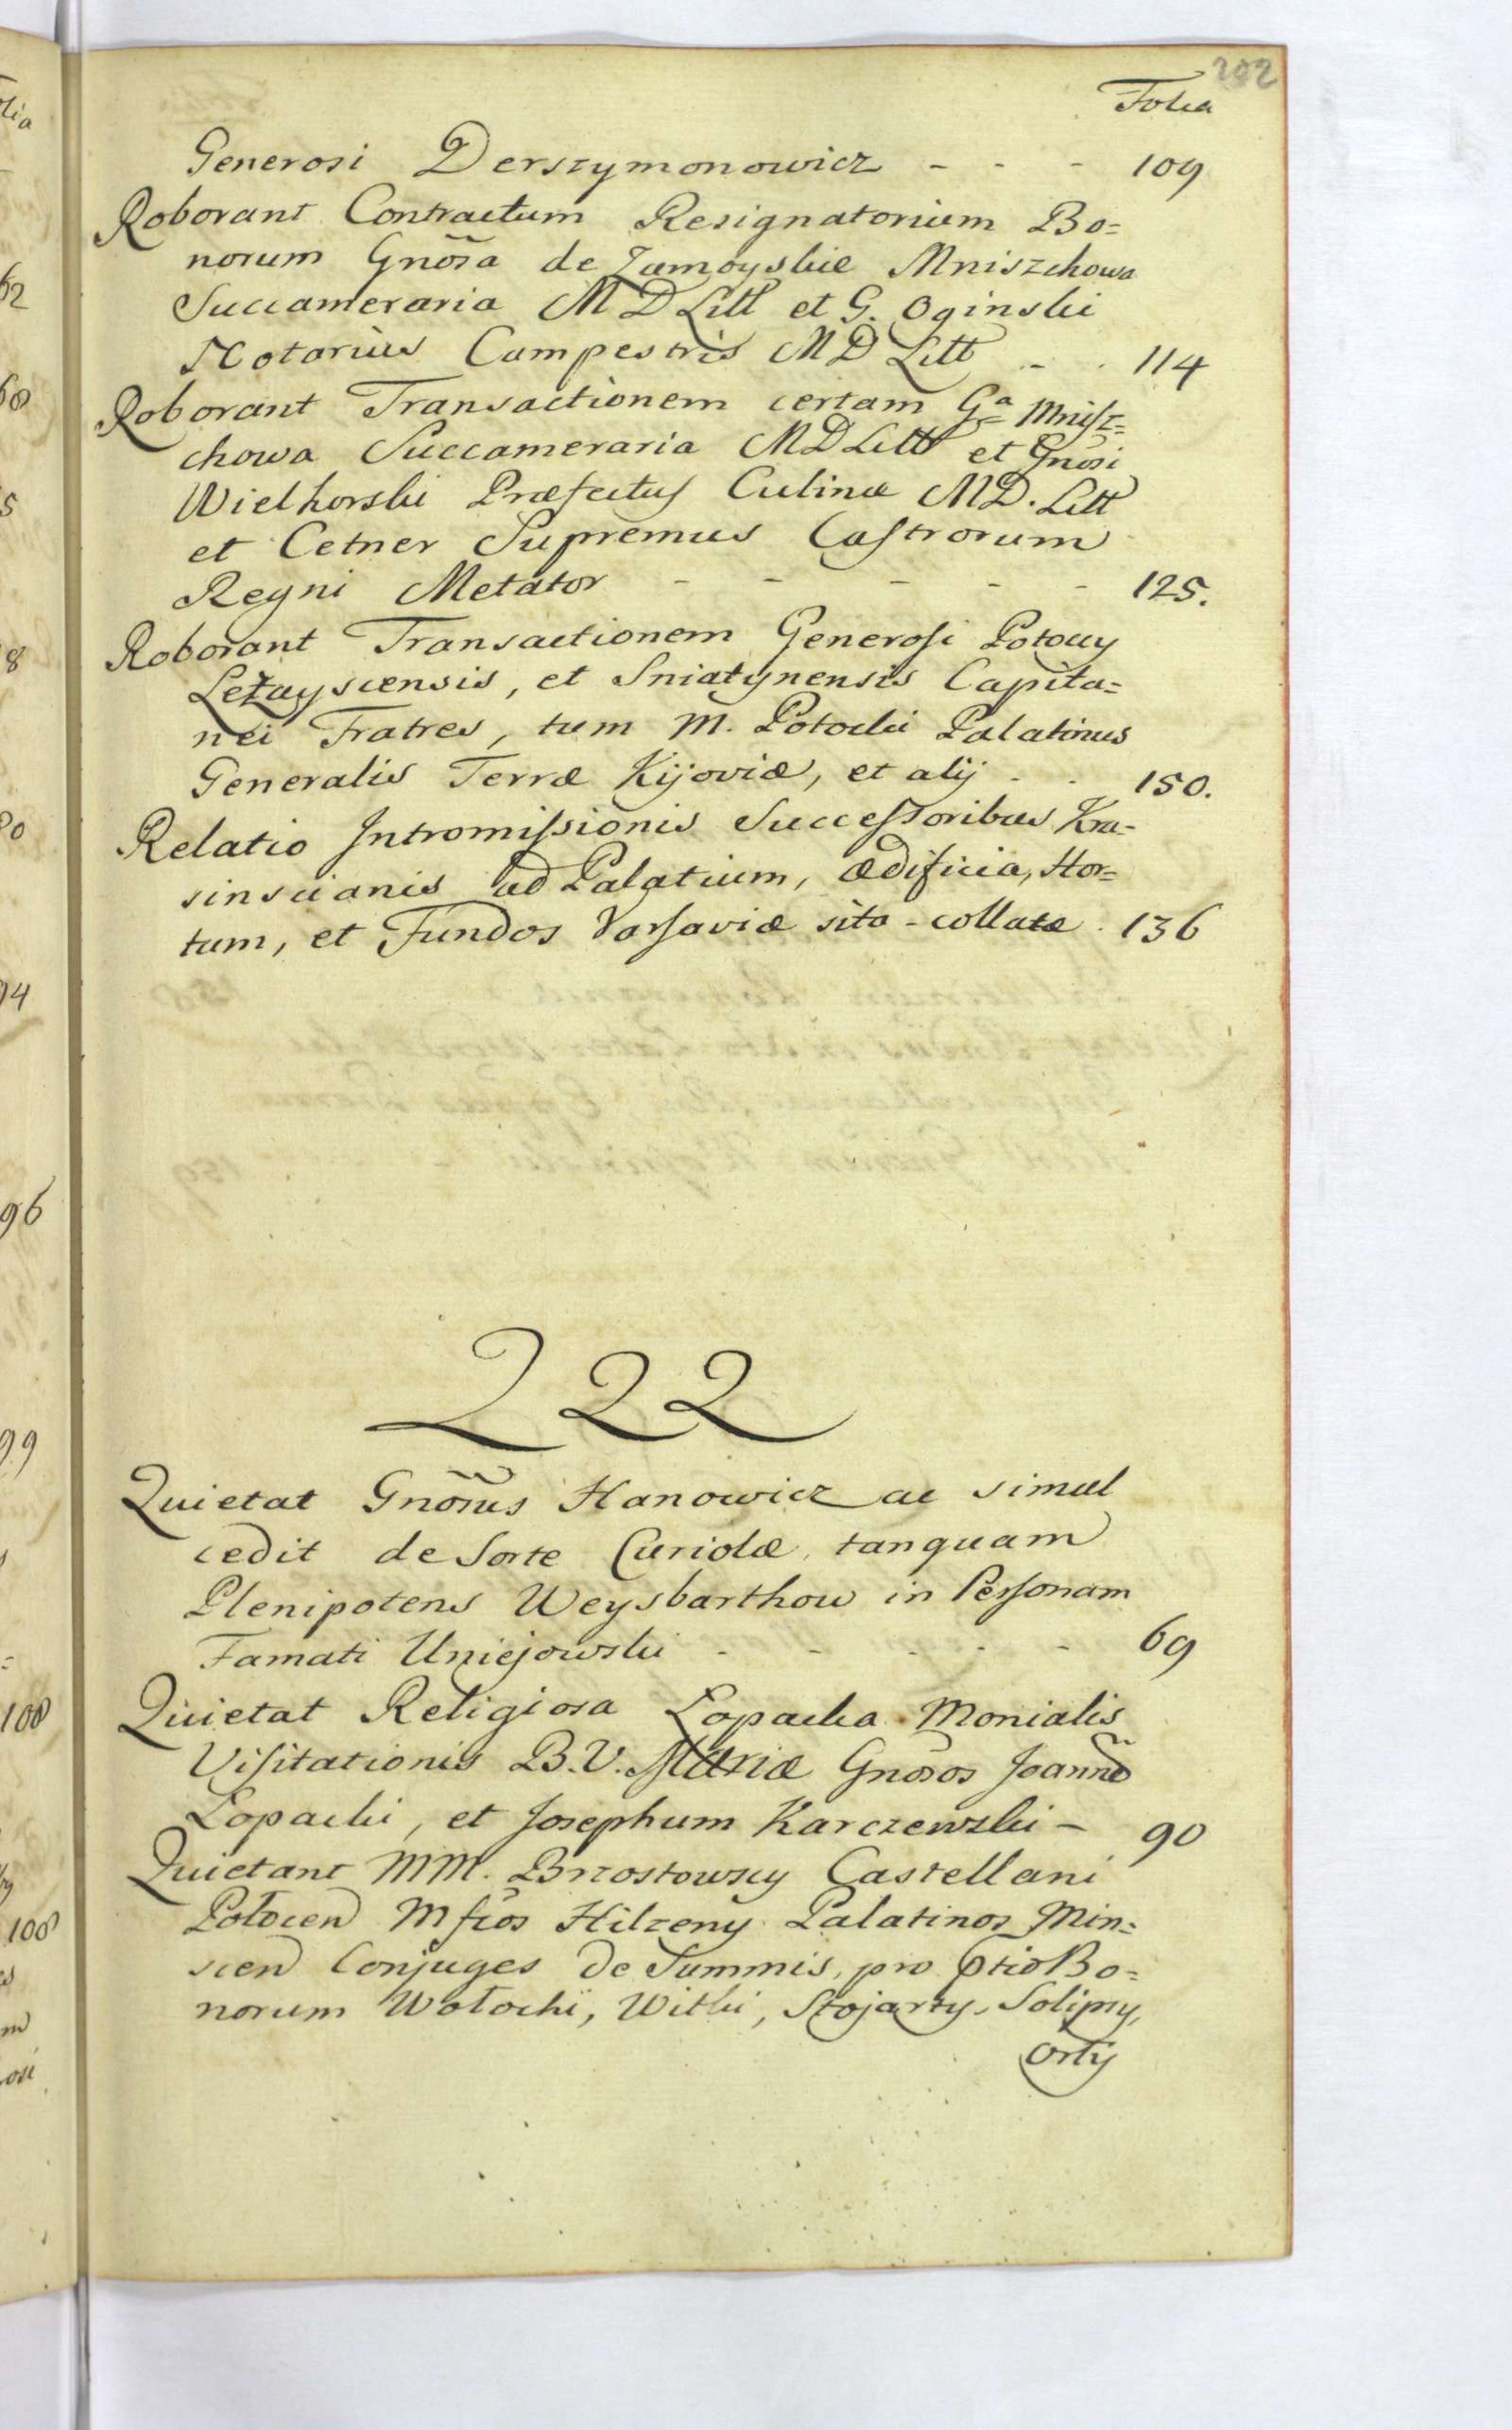 202
Folia
Generosi Derszymonowicz - - - 109
Roborant Contractum Resignatorium Bo=
norum Gnõsa de Zamoyskie Mniszchowa
Succameraria M D Litt et G. Oginski
Notarius Campestris M D Litt - . 114
Roborant Transactionem certam Gᵃ Mnisz=
chowa Succameraria M D Litt et Gnõsi
Wielhorski Præfectus Culinæ M D. Litt
et Cetner Supremus Castrorum
Regni Metator - - - - - 125.
Roborant Transactionem Generosi Potoccy
Leżayscensis, et Sniatynensis Capita=
nei Fratres, tum M. Potocki Palatinus
Generalis Terræ Kijoviæ, et alij - . 150.
Relatio Intromissionis Successoribus Kra=
sinscianis ad Palatium, Ædificia, Hor=
tum, et Fundos Varsaviæ sita - collatæ . 136
222
Quietat Gnõsus Hanowicz ac simul
cedit de Sorte Curiolæ tanquam
Plenipotens Weysbarthow in Personam
Famati Uniejowski - - - - - 69
Quietat Religiosa Łopacka Monialis
Visitationis B. V. Mariæ Gnõsos Joannẽ
Łopacki, et Josephum Karczewski - 90
Quietant MM. Brzostowscy Castellani
Połocen Mfcos Hilzeny Palatinos Min=
scen Conjuges de Summis, pro ptio Bo=
norum Wołochi, Witki, Stojarzy, Solipsy,
Orly